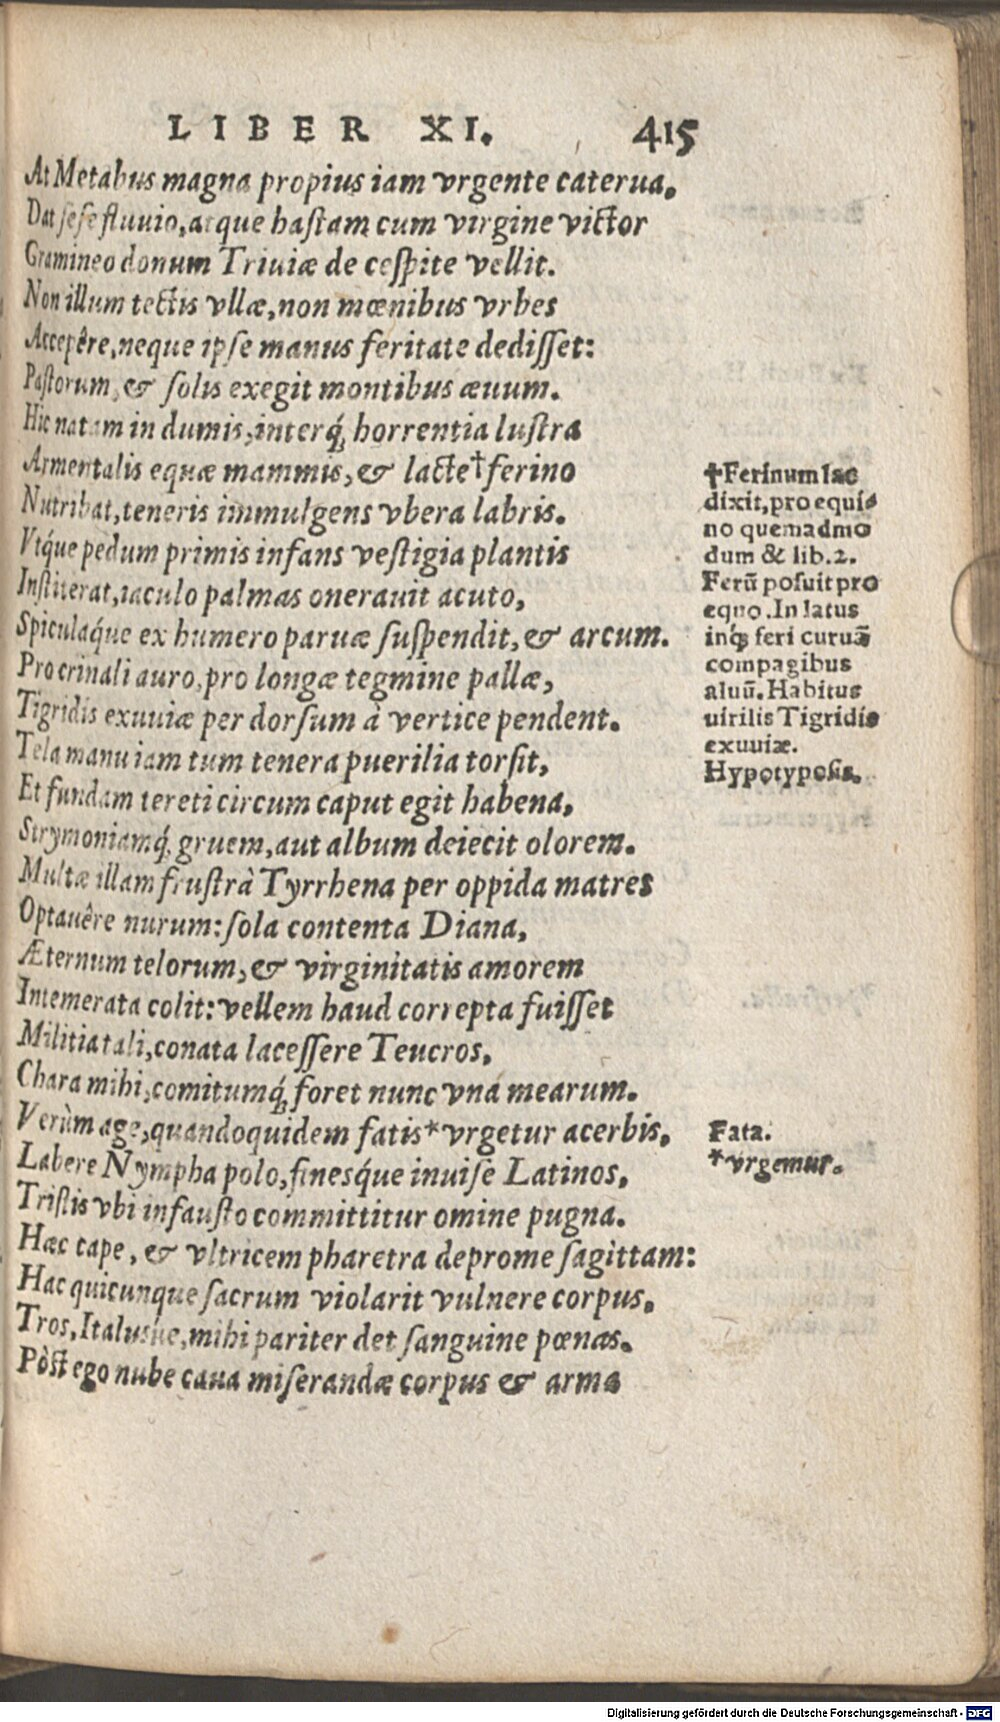 LIBER XI. 415
At Metabus magna propius iam vrgente caterua,
Dat sese fluuio, atque hastam cum virgine victor
Gramineo donum Triuiæ de cespite vellit.
Non illum tectis vllæ, non mœnibus vrbes
Accepêre, neque ipse manus feritate dedisset:
Pastorum, & solis exegit montibus æuum.
Hic natam in dumis, interq́; horrentia lustra
Armentalis equæ mammis, & lacte † ferino
Nutribat, teneris immulgens vbera labris.
Vtq́ue pedum primis infans vestigia plantis
Institerat, iaculo palmas onerauit acuto,
Spiculaq́ue ex humero paruæ suspendit, & arcum.
Pro crinali auro, pro longæ tegmine pallæ,
Tigridis exuuiæ per dorsum à vertice pendent.
Tela manu iam tum tenera puerilia torsit,
Et fundam tereti circum caput egit habena,
Strymoniamq́; gruem, aut album deiecit olorem.
Multæ illam frustrà Tyrrhena per oppida matres
Optauêre nurum: sola contenta Diana,
Æternum telorum, & virginitatis amorem
Intemerata colit: vellem haud correpta fuisset
Militia tali, conata lacessere Teucros,
Chara mihi, comitumq́; foret nunc vna mearum.
Verùm age, quandoquidem fatis * vrgetur acerbis,
Labere Nympha polo, finesq́ue inuise Latinos,
Tristis vbi infausto committitur omine pugna.
Hæc cape, & vltricem pharetra deprome sagittam:
Hac quicunque sacrum violarit vulnere corpus,
Tros, Italusúe, mihi pariter det sanguine pœnas.
Pòst ego nube caua miserandæ corpus & arma
†Ferinum lac
dixit, pro equi-
no quemadmo
dum & lib.2.
Ferū posuit pro
equo. In latus
inq́; feri curuā
compagibus
aluū. Habitus
uirilis Tigridis
exuuiæ.
Hypotyposis.
Fata.
*vrgemur.
Digitalisierung gefördert durch die Deutsche Forschungsgemeinschaft - DFG